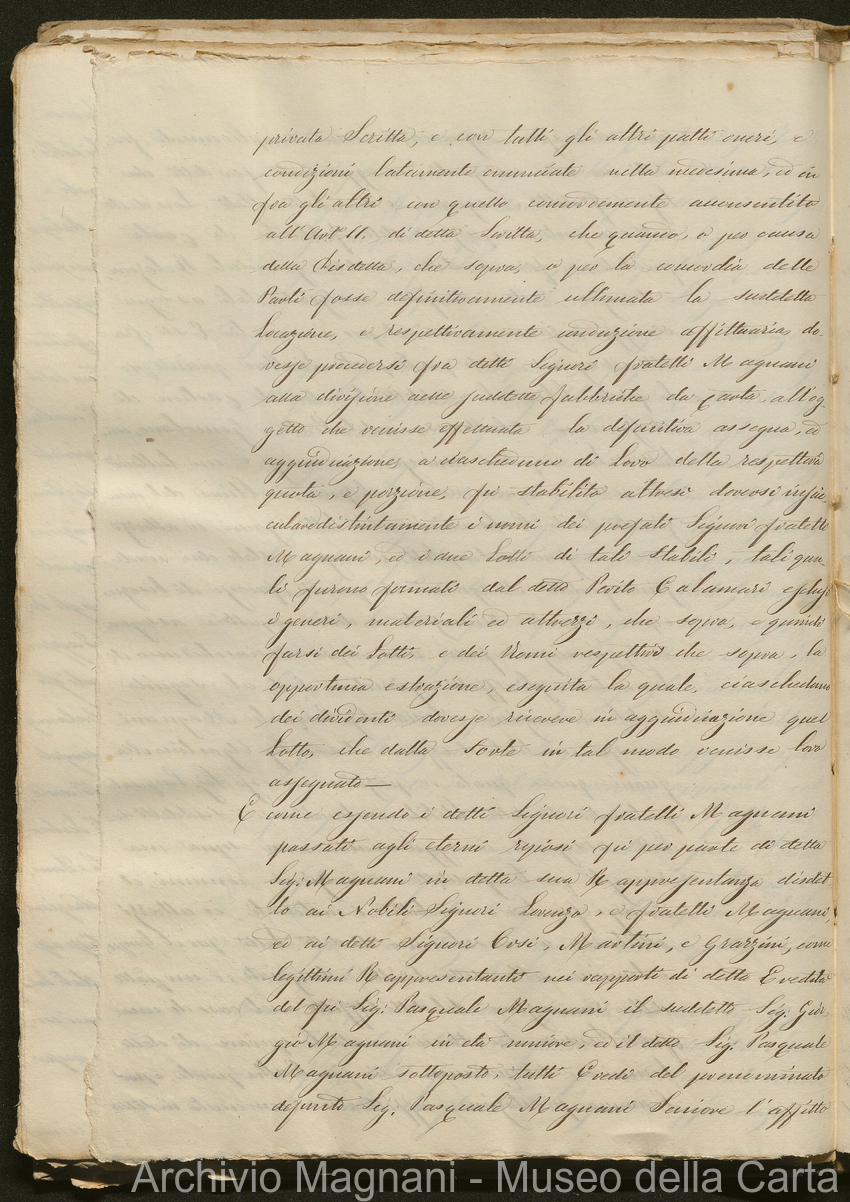 privata Scritta, e con tutti gli altri patti oneri, e
condizioni latamente enunciate nella medesima, ed in
fra gli altri con quello concordemente acconsentito
all'Art.° 11. di detta Scritta, che quando, o per causa
della Disdetta, che sopra, o per la concordia delle
Parti fosse definitivamente ultimata la suddetta
Locazione, e respettivamente conduzione affittuaria, do-
vesse procedersi fra detti Signori fratelli Magnani
alla divisione delle suddette fabbriche da Carta, all'og-
getto che venisse effettuata la definitiva assegna, ed
aggiudicazione, a ciascheduno di Loro della respettiva
quota, e porzione, fù stabilito altresì doversi
distintamente i nomi dei prefati Signori fratelli
Magnani, ed i due Lotti di tali Stabili, tali qua-
li furono formati dal detto Perito Calamari esclusi
i generi, materiali ed attrezzi, che sopra, e quindi
farsi dei Lotti, e dei Nomi respettivi che sopra, la
opportuna estrazione, eseguita la quale, ciascheduno
dei dividenti dovesse ricevere in aggiudicazione quel
Lotto, che dalla Sorte in tal modo venisse loro
assegnato —
E come essendo i detti Signori fratelli Magnani
passati agli eterni riposi fù per parte di detta
Sig: Magnani in detta sua Rappresentanza disdet-
to ai Nobili Signori Lorenzo, e fratelli Magnani,
ed ai detti Signori Cosi, Martini, e Grazzini, come
legittimi Rappresentanti nei rapporti di detta Eredità
del fù Sig: Pasquale Magnani il suddetto Sig. Gior-
gio Magnani in età minore, ed il detto Sig. Pasquale
Magnani sottoposto, tutti Eredi del prenominato
defunto Sig. Pasquale Magnani Seniore l'affitto
Archivio Magnani - Museo della Carta